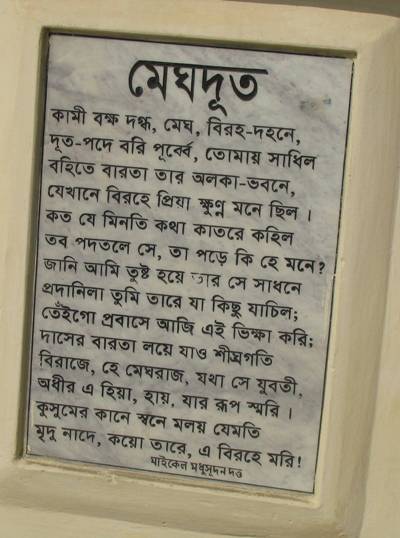 মেঘদূত
কামী বক্ষ দগ্ধ, মেঘ, বিরহ-দহনে,
দূত-পদে বরি পূর্ব্বে, তোমায় সাধিল
বহিতে বারতা তার অলকা-ভবনে,
যেখানে বিরহে প্রিয়া ক্ষুণ্ণ মনে ছিল ।
কত যে মিনতি কথা কাতরে কহিল
তব পদতলে সে, তা পড়ে কি হে মনে?
জানি আমি তুষ্ট হয়ে তার সে সাধনে
প্রদানিলা তুমি তারে যা কিছু যাচিল;
তেঁইগো প্রবাসে আজি এই ভিক্ষা করি;
দাসের বারতা লয়ে যাও শীঘ্রগতি
বিরাজে, হে মেঘরাজ, যথা সে যুবতী,
অধীর এ হিয়া, হায়, যার রূপ স্মরি ।
কুসুমের কানে স্বনে মলয় যেমতি
মৃদু নাদে, কয়ো তারে, এ বিরহে মরি!
মাইকেল মধুসূদন দত্ত